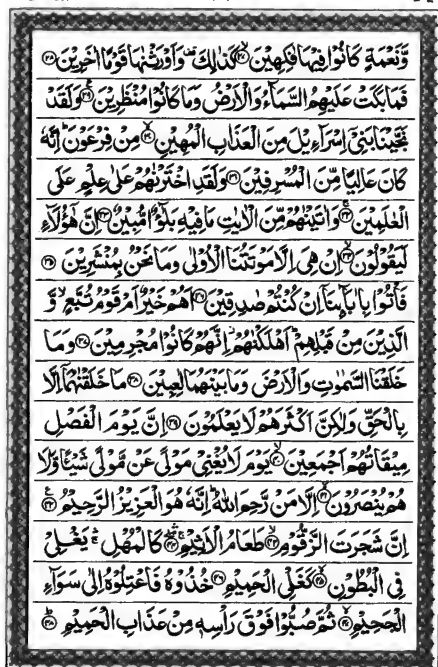 وَّنَعْمَةٍ كَانُوْا فِيْهَا فٰكِهِيْنَ ۙ﴿۲۷﴾ كَذٰلِكَ ۫ وَاَوْرَثْنٰهَا قَوْمًا اٰخَرِيْنَ ﴿۲۸﴾
فَمَا بَكَتْ عَلَيْهِمُ السَّمَآءُ وَالْاَرْضُ وَمَا كَانُوْا مُنْظَرِيْنَ ﴿۲۹﴾ وَلَقَدْ
نَجَّيْنَا بَنِيْٓ اِسْرَآءِيْلَ مِنَ الْعَذَابِ الْمُهِيْنِ ۙ﴿۳۰﴾ مِنْ فِرْعَوْنَ ؕ اِنَّهٗ
كَانَ عَالِيًا مِّنَ الْمُسْرِفِيْنَ ﴿۳۱﴾ وَلَقَدِ اخْتَرْنٰهُمْ عَلٰى عِلْمٍ عَلَى
الْعٰلَمِيْنَ ۚ﴿۳۲﴾ وَاٰتَيْنٰهُمْ مِّنَ الْاٰيٰتِ مَا فِيْهِ بَلٰٓؤٌا مُّبِيْنٌ ﴿۳۳﴾ اِنَّ هٰٓؤُلَآءِ
لَيَقُوْلُوْنَ ۙ﴿۳۴﴾ اِنْ هِيَ اِلَّا مَوْتَتُنَا الْاُوْلٰى وَمَا نَحْنُ بِمُنْشَرِيْنَ ﴿۳۵﴾
فَاْتُوْا بِاٰبَآئِنَآ اِنْ كُنْتُمْ صٰدِقِيْنَ ﴿۳۶﴾ اَهُمْ خَيْرٌ اَمْ قَوْمُ تُبَّعٍ ۙ وَّ
الَّذِيْنَ مِنْ قَبْلِهِمْ ؕ اَهْلَكْنٰهُمْ ۫ اِنَّهُمْ كَانُوْا مُجْرِمِيْنَ ﴿۳۷﴾ وَمَا
خَلَقْنَا السَّمٰوٰتِ وَالْاَرْضَ وَمَا بَيْنَهُمَا لٰعِبِيْنَ ﴿۳۸﴾ مَا خَلَقْنٰهُمَآ اِلَّا
بِالْحَقِّ وَلٰكِنَّ اَكْثَرَهُمْ لَا يَعْلَمُوْنَ ﴿۳۹﴾ اِنَّ يَوْمَ الْفَصْلِ
مِيْقَاتُهُمْ اَجْمَعِيْنَ ۙ﴿۴۰﴾ يَوْمَ لَا يُغْنِيْ مَوْلًى عَنْ مَّوْلًى شَيْئًا وَّلَا
هُمْ يُنْصَرُوْنَ ۙ﴿۴۱﴾ اِلَّا مَنْ رَّحِمَ اللّٰهُ ؕ اِنَّهٗ هُوَ الْعَزِيْزُ الرَّحِيْمُ ﴿۴۲﴾
اِنَّ شَجَرَتَ الزَّقُّوْمِ ۙ﴿۴۳﴾ طَعَامُ الْاَثِيْمِ ﴿۴۴﴾ كَالْمُهْلِ ۚ يَغْلِيْ
فِي الْبُطُوْنِ ۙ﴿۴۵﴾ كَغَلْيِ الْحَمِيْمِ ﴿۴۶﴾ خُذُوْهُ فَاعْتِلُوْهُ اِلٰى سَوَآءِ
الْجَحِيْمِ ۖ﴿۴۷﴾ ثُمَّ صُبُّوْا فَوْقَ رَاْسِهٖ مِنْ عَذَابِ الْحَمِيْمِ ؕ﴿۴۸﴾